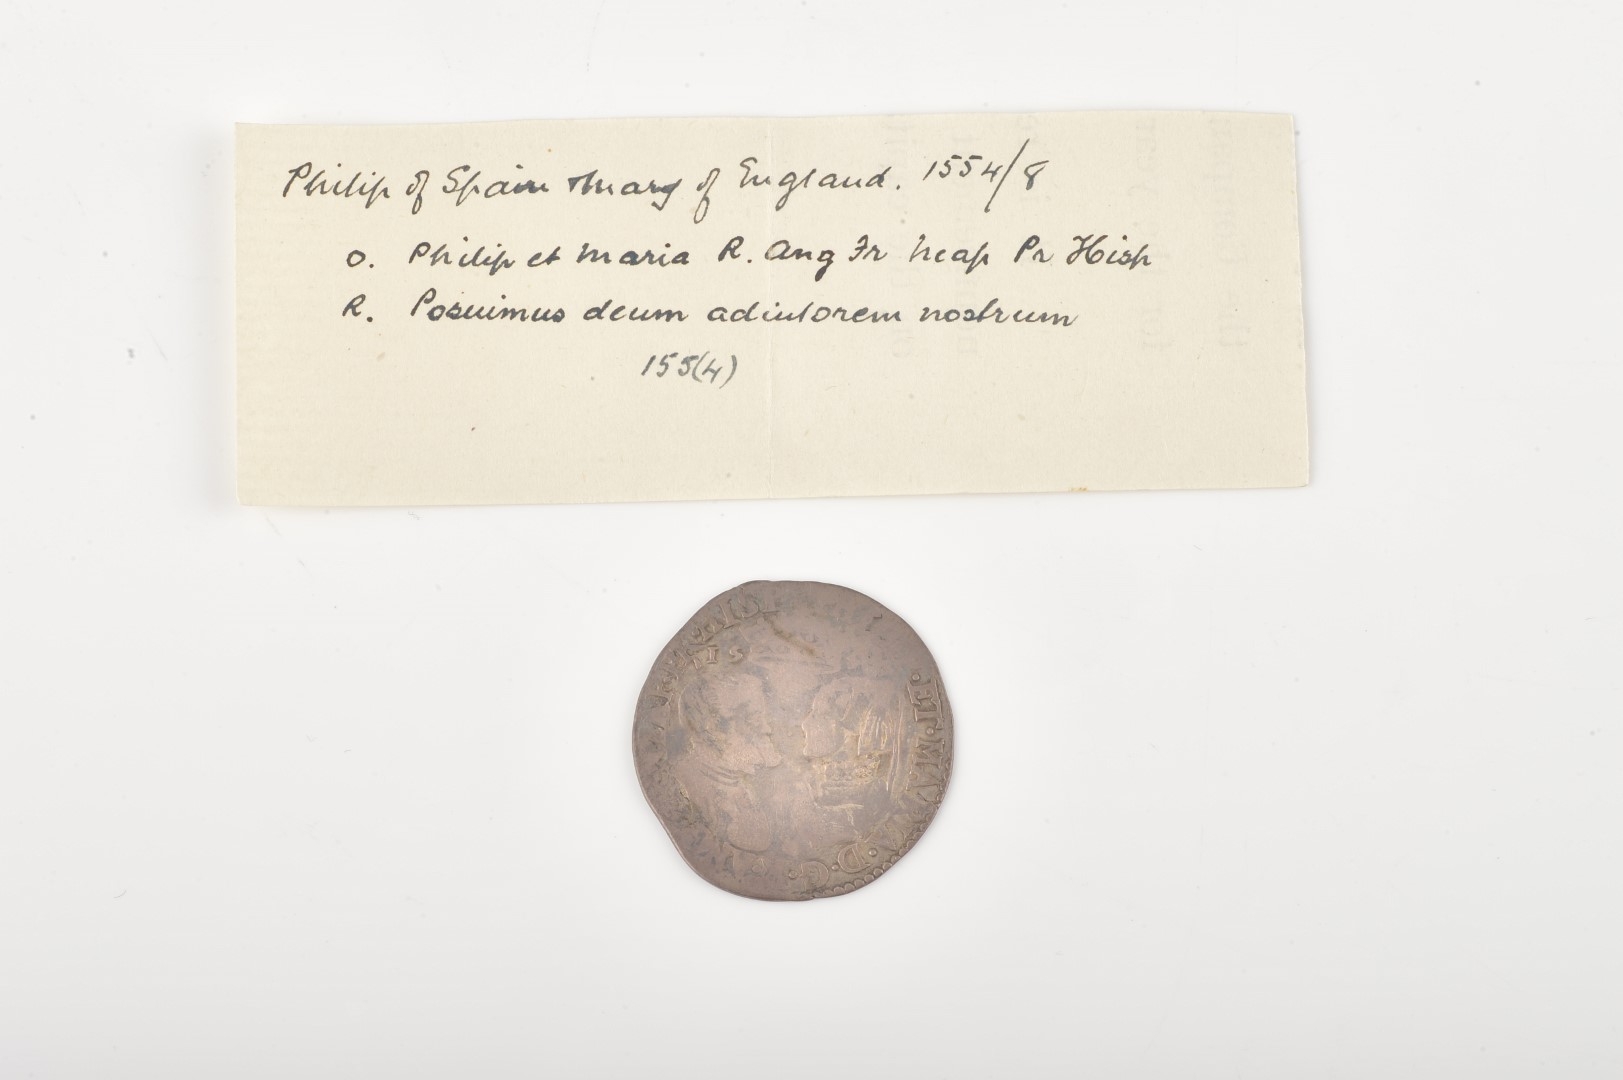 Philip of Spain & Mary of England. 1554/8
O. Philip et Maria R. Ang Fr Neap Pr Hisp
R. Posuimus deum adiutorem nostrum
155(4)
15
·ET·MARIA·D·G·